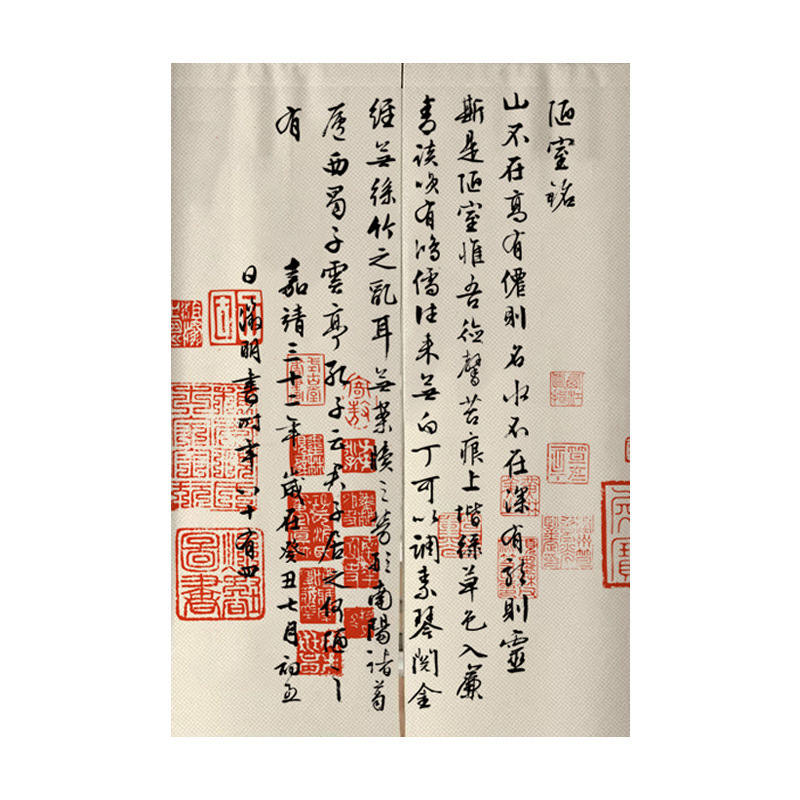 陋室銘
山不在高有僊則名水不在深有龍則靈
斯是陋室惟吾德馨苔痕上堦綠草色入簾
青談咲有鴻儒往來無白丁可以調素琴閱金
經無絲竹之亂耳無案牘之勞形南陽諸葛
廬西蜀子雲亭孔子云君子居之何陋之
有 嘉靖三十二年歲在癸丑七月初五
日徵明書時年八十有四